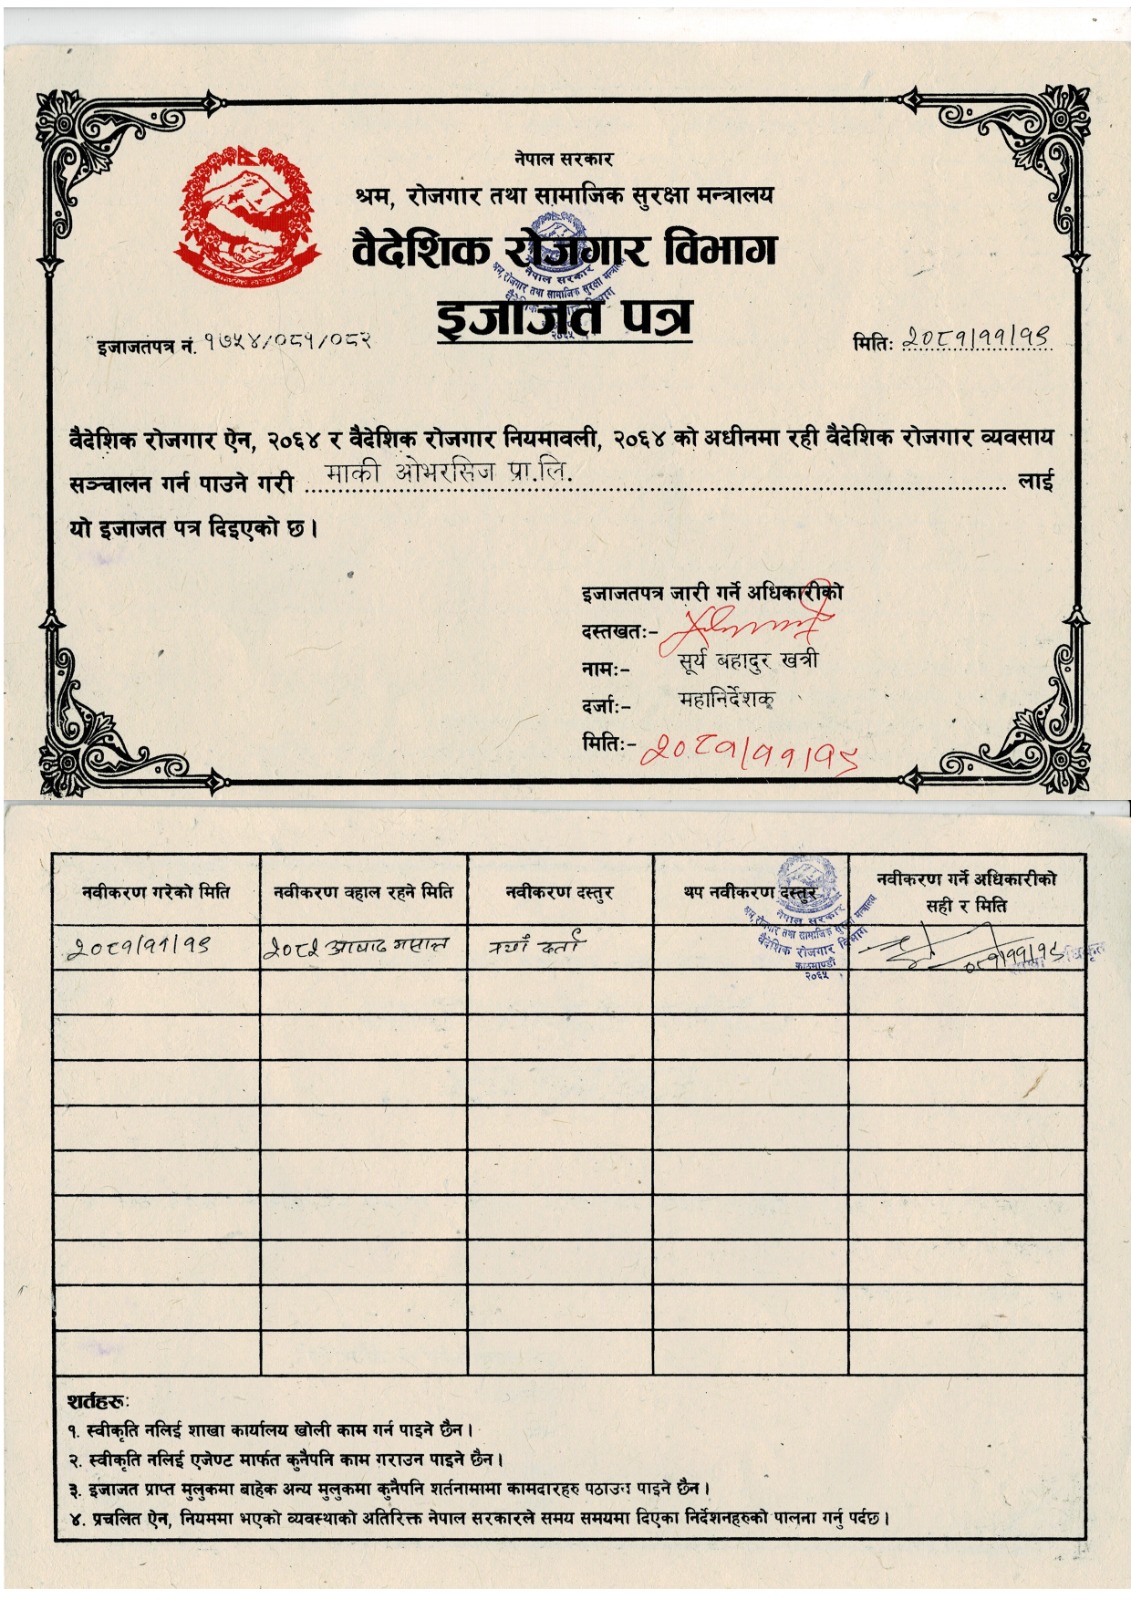 नेपाल सरकार
श्रम, रोजगार तथा सामाजिक सुरक्षा मन्त्रालय
वैदेशिक रोजगार विभाग
इजाजत पत्र
इजाजतपत्र नं. १७५४/०८१/०८२
मिति: २०८१/११/१९
वैदेशिक रोजगार ऐन, २०६४ र वैदेशिक रोजगार नियमावली, २०६४ को अधीनमा रही वैदेशिक रोजगार व्यवसाय
सञ्चालन गर्न पाउने गरी माकी ओभरसिज प्रा.लि. लाई
यो इजाजत पत्र दिइएको छ।
इजाजतपत्र जारी गर्ने अधिकारीको
दस्तखतः-
नामः- सूर्य बहादुर खत्री
दर्जाः- महानिर्देशक
मितिः- २०८१/११/१९
नवीकरण गरेको मिति नवीकरण वहाल रहने मिति नवीकरण दस्तुर थप नवीकरण दस्तुर नवीकरण गर्ने अधिकारीको
सही र मिति
२०८१/११/१९ २०८२ आषाढ मसान्त नयाँ दर्ता ०८१/११/१९
नेपाल सरकार
श्रम, रोजगार तथा सामाजिक सुरक्षा मन्त्रालय
वैदेशिक रोजगार विभाग
काठमाण्डौ
२०६५
शर्तहरूः
१. स्वीकृति नलिई शाखा कार्यालय खोली काम गर्न पाइने छैन।
२. स्वीकृति नलिई एजेण्ट मार्फत कुनैपनि काम गराउन पाइने छैन।
३. इजाजत प्राप्त मुलुकमा बाहेक अन्य मुलुकमा कुनैपनि शर्तनामामा कामदारहरु पठाउन पाइने छैन।
४. प्रचलित ऐन, नियममा भएको व्यवस्थाको अतिरिक्त नेपाल सरकारले समय समयमा दिएका निर्देशनहरुको पालना गर्नु पर्दछ।